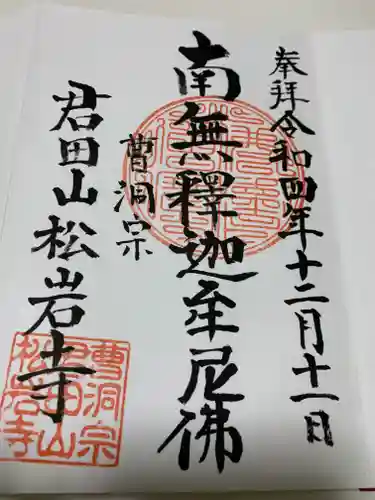 奉拜令和四年十二月十一日
南無釋迦牟尼佛
曹洞宗
君田山松岩寺
曹洞宗
君田山
松岩寺